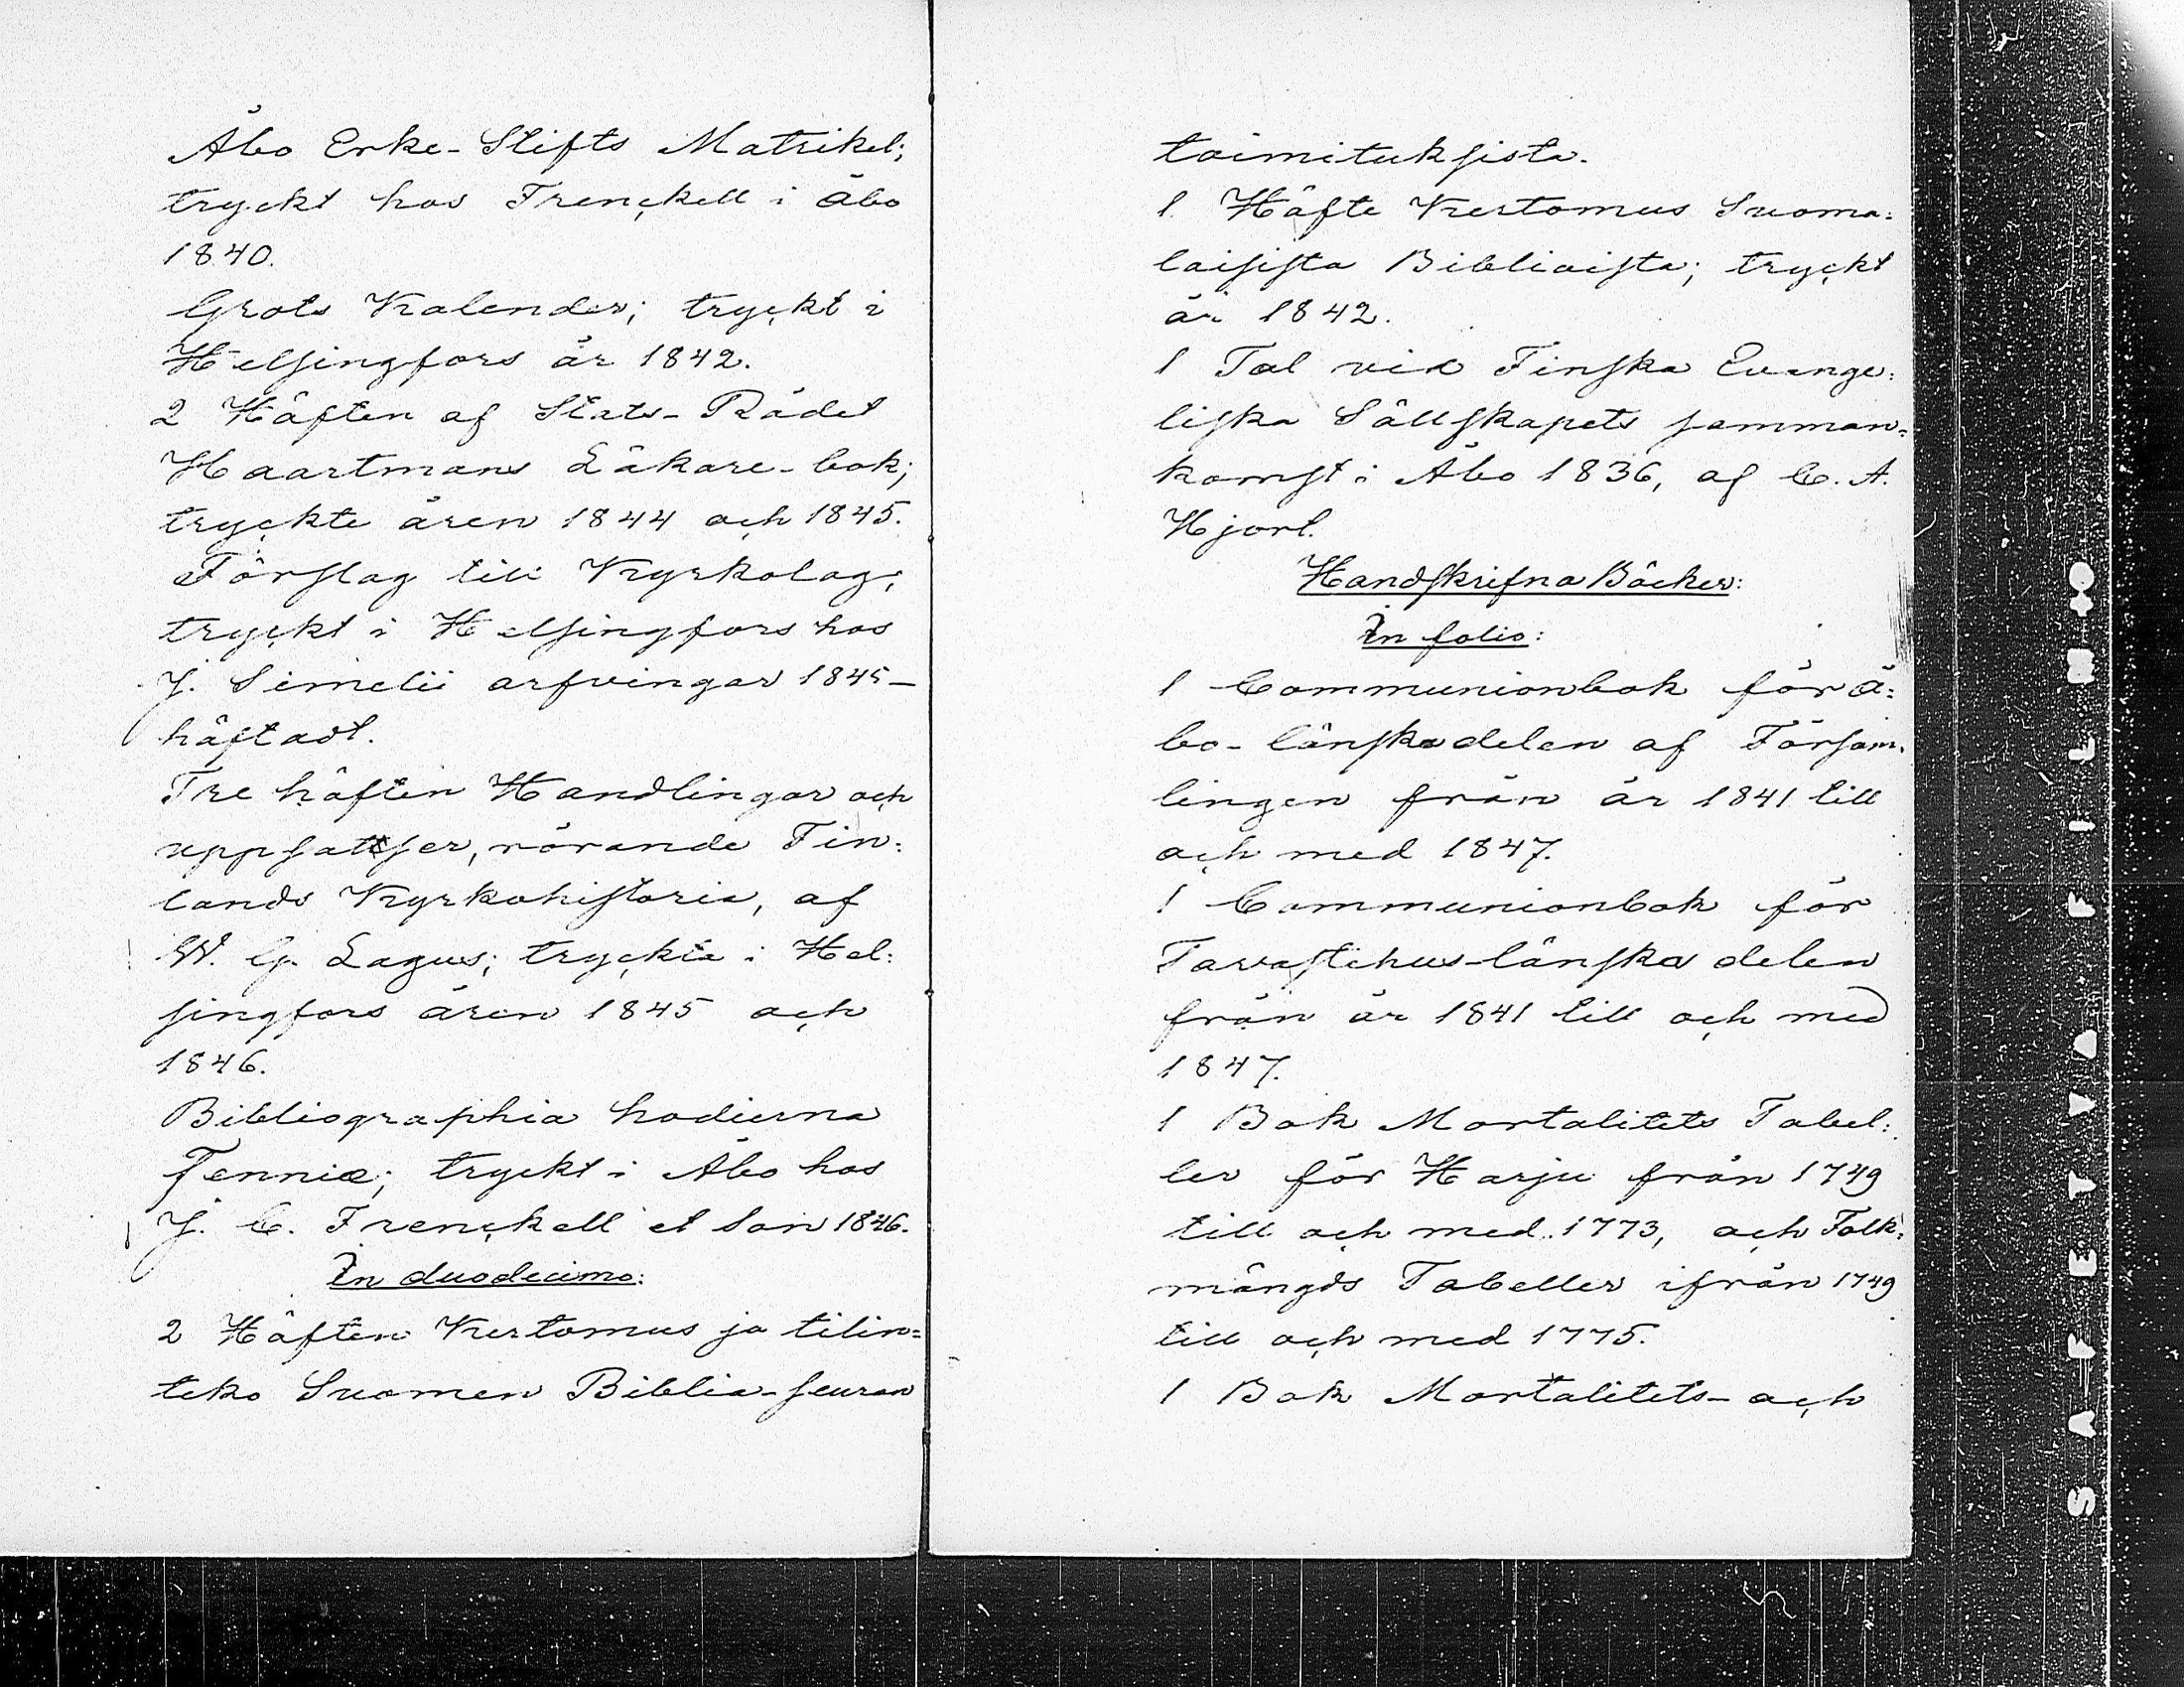 Åbo Erke-Stifts Matrikel;
tryckt hos Frenckell i Åbo
1840.
Grots Kalender; tryckt i
Helsingfors år 1842.
2 Häften af Stats-Rådet
Haartmans Läkare-bok;
tryckte åren 1844 och 1845.
Förslag till Kyrkolag;
tryckt i Helsingfors hos
J. Simelii arfvingar 1845-
häftadt.
Tre häften Handlingar och
uppsattser, rörande Fin=
lands Kyrkohistoria, af
W. G. Lagus; tryckte i Hel=
singfors åren 1845 och
1846.
Bibliographia hodierna
Fenniæ; tryckt i Åbo hos
J. C. Frenckell et Son 1846.
In duodecimo:
2 Häften Kertomus ja tilin=
teko Suomen Biblia-seuran
toimituksista.
1 Häfte Kertomus Suoma=
laisista Biblioista; tryckt
år 1842.
1 Tal vid Finska Evange=
liska Sällskapets samman=
komst i Åbo 1836, af C. A.
Hjort.
Handskrifna Böcker:
In folio:
1 Communionbok för Å=
bo-länska delen af Försam=
lingen från år 1841 till
och med 1847.
1 Communionbok för
Tavastehus-länska delen
från år 1841 till och med
1847.
1 Bok Mortalitets Tabel=
ler för Harju från 1749
till och med 1773, och Folk=
mängds Tabeller ifrån 1749
till och med 1775.
1 Bok Mortalitets- och
SAFETY FILM